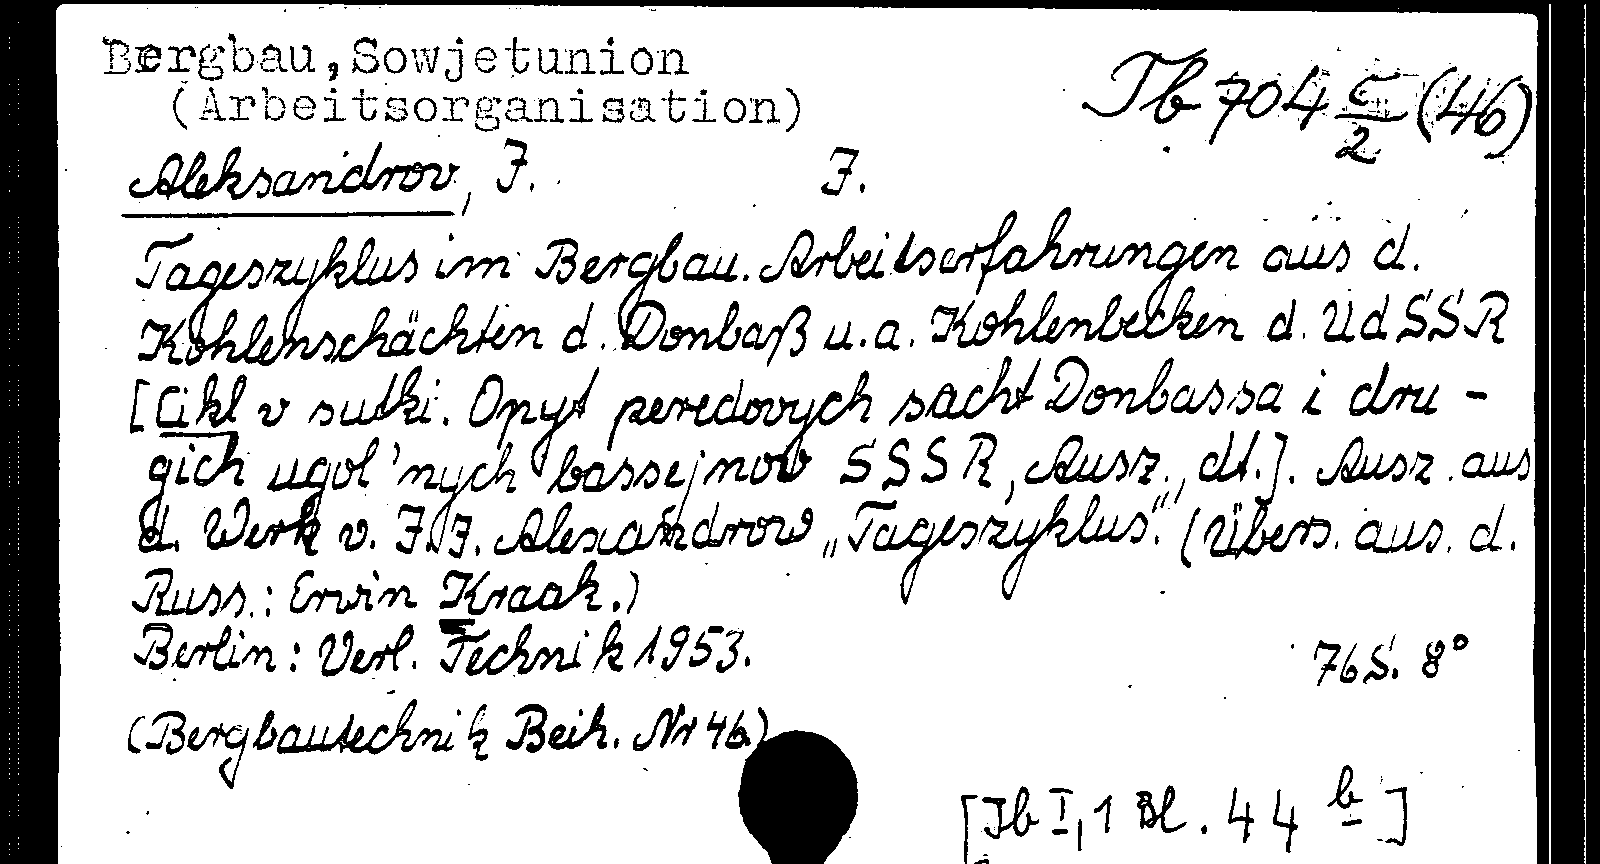 Bergbau, Sowjetunion
(Arbeitsorganisation)
Ib 704 c/2 (46)
Aleksandrov, I. I.
Tageszyklus im Bergbau. Arbeitserfahrungen aus d.
Kohlenschächten d. Donbaß u.a. Kohlenbecken d. UdSSR
[Cikl v sutki. Opyt peredovych sacht Donbassa i dru-
gich ugol'nych bassejnow SSSR, Ausz., dt.]. Ausz. aus
d. Werk v. I.I. Alexandrow „Tageszyklus“. (Übers. aus. d.
Russ.: Erwin Kraak.)
Berlin: Verl. Technik 1953.
76 S. 8°
(Bergbautechnik Beih. Nr 46)
[Ib I, 1 Bl. 44 b]